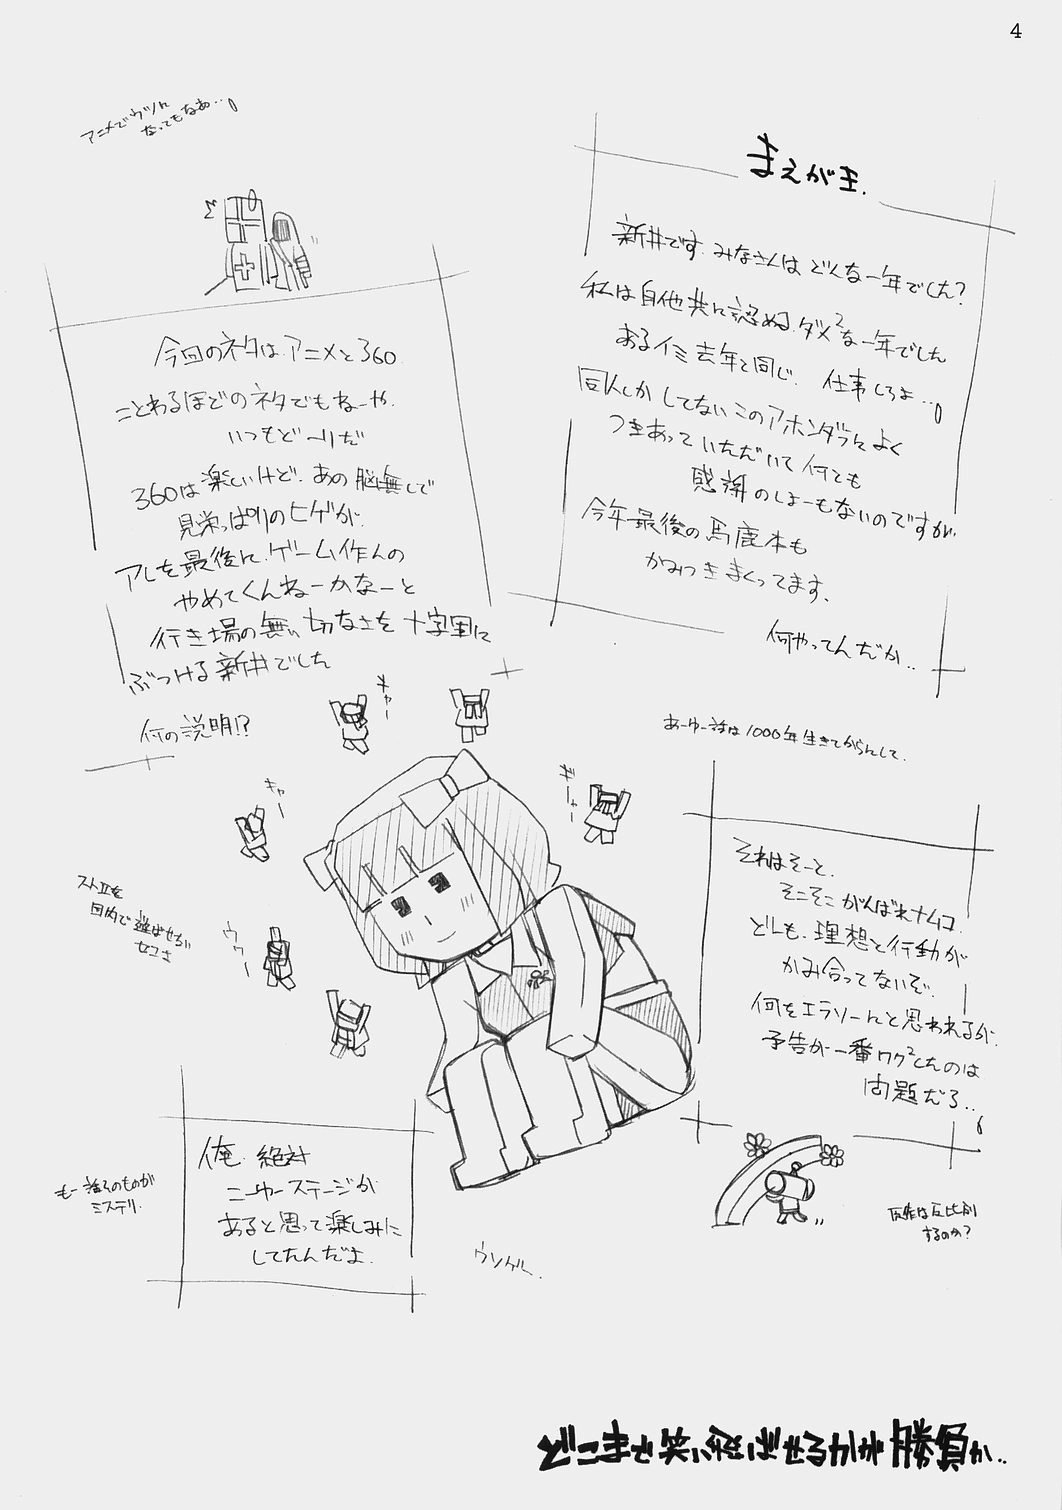 4
まえがき.
新井です. みなさんは どんな一年でした?
私は自他共に認める. ダメ²な一年でした
あるイミ去年と同じ. 仕事しろよ…
同人しか してない このアホンダラに よく
つきあって いただいて 何とも
感謝のしよーもないのですが
今年最後の馬鹿本も
かみつきまくってます.
何やってんだか..
アニメでウツに
なってもなぁ…
今回のネタは アニメと360.
ことわるほどの ネタでもねーや.
いつもど〜りだ
360は楽しいけど. あの脳無しで
見栄っぱりのヒゲが.
アレを最後に. ゲーム作んの
やめてくんねーかなーと
行き場の無い 切なさを 十字軍に
ぶつける 新井でした
何の説明!?
キャー
ギャー
キャー
ウワー
あーゆー話は 1000年生きてからんして.
それはそーと.
そこそこ がんばれナムコ.
どーも. 理想と行動が
かみ合ってないぞ.
何をエラソーにと思われるが.
予告が一番ワク²したのは
問題だろ..
ストIIを
国内で遊ばせない
セコさ
俺. 絶対
ニューステージが
あると思って楽しみに
してたんだよ.
もー 誰そのものが
ミステリ.
ウソゲー.
するのか?
どこまで笑い飛ばせるかが勝負か..